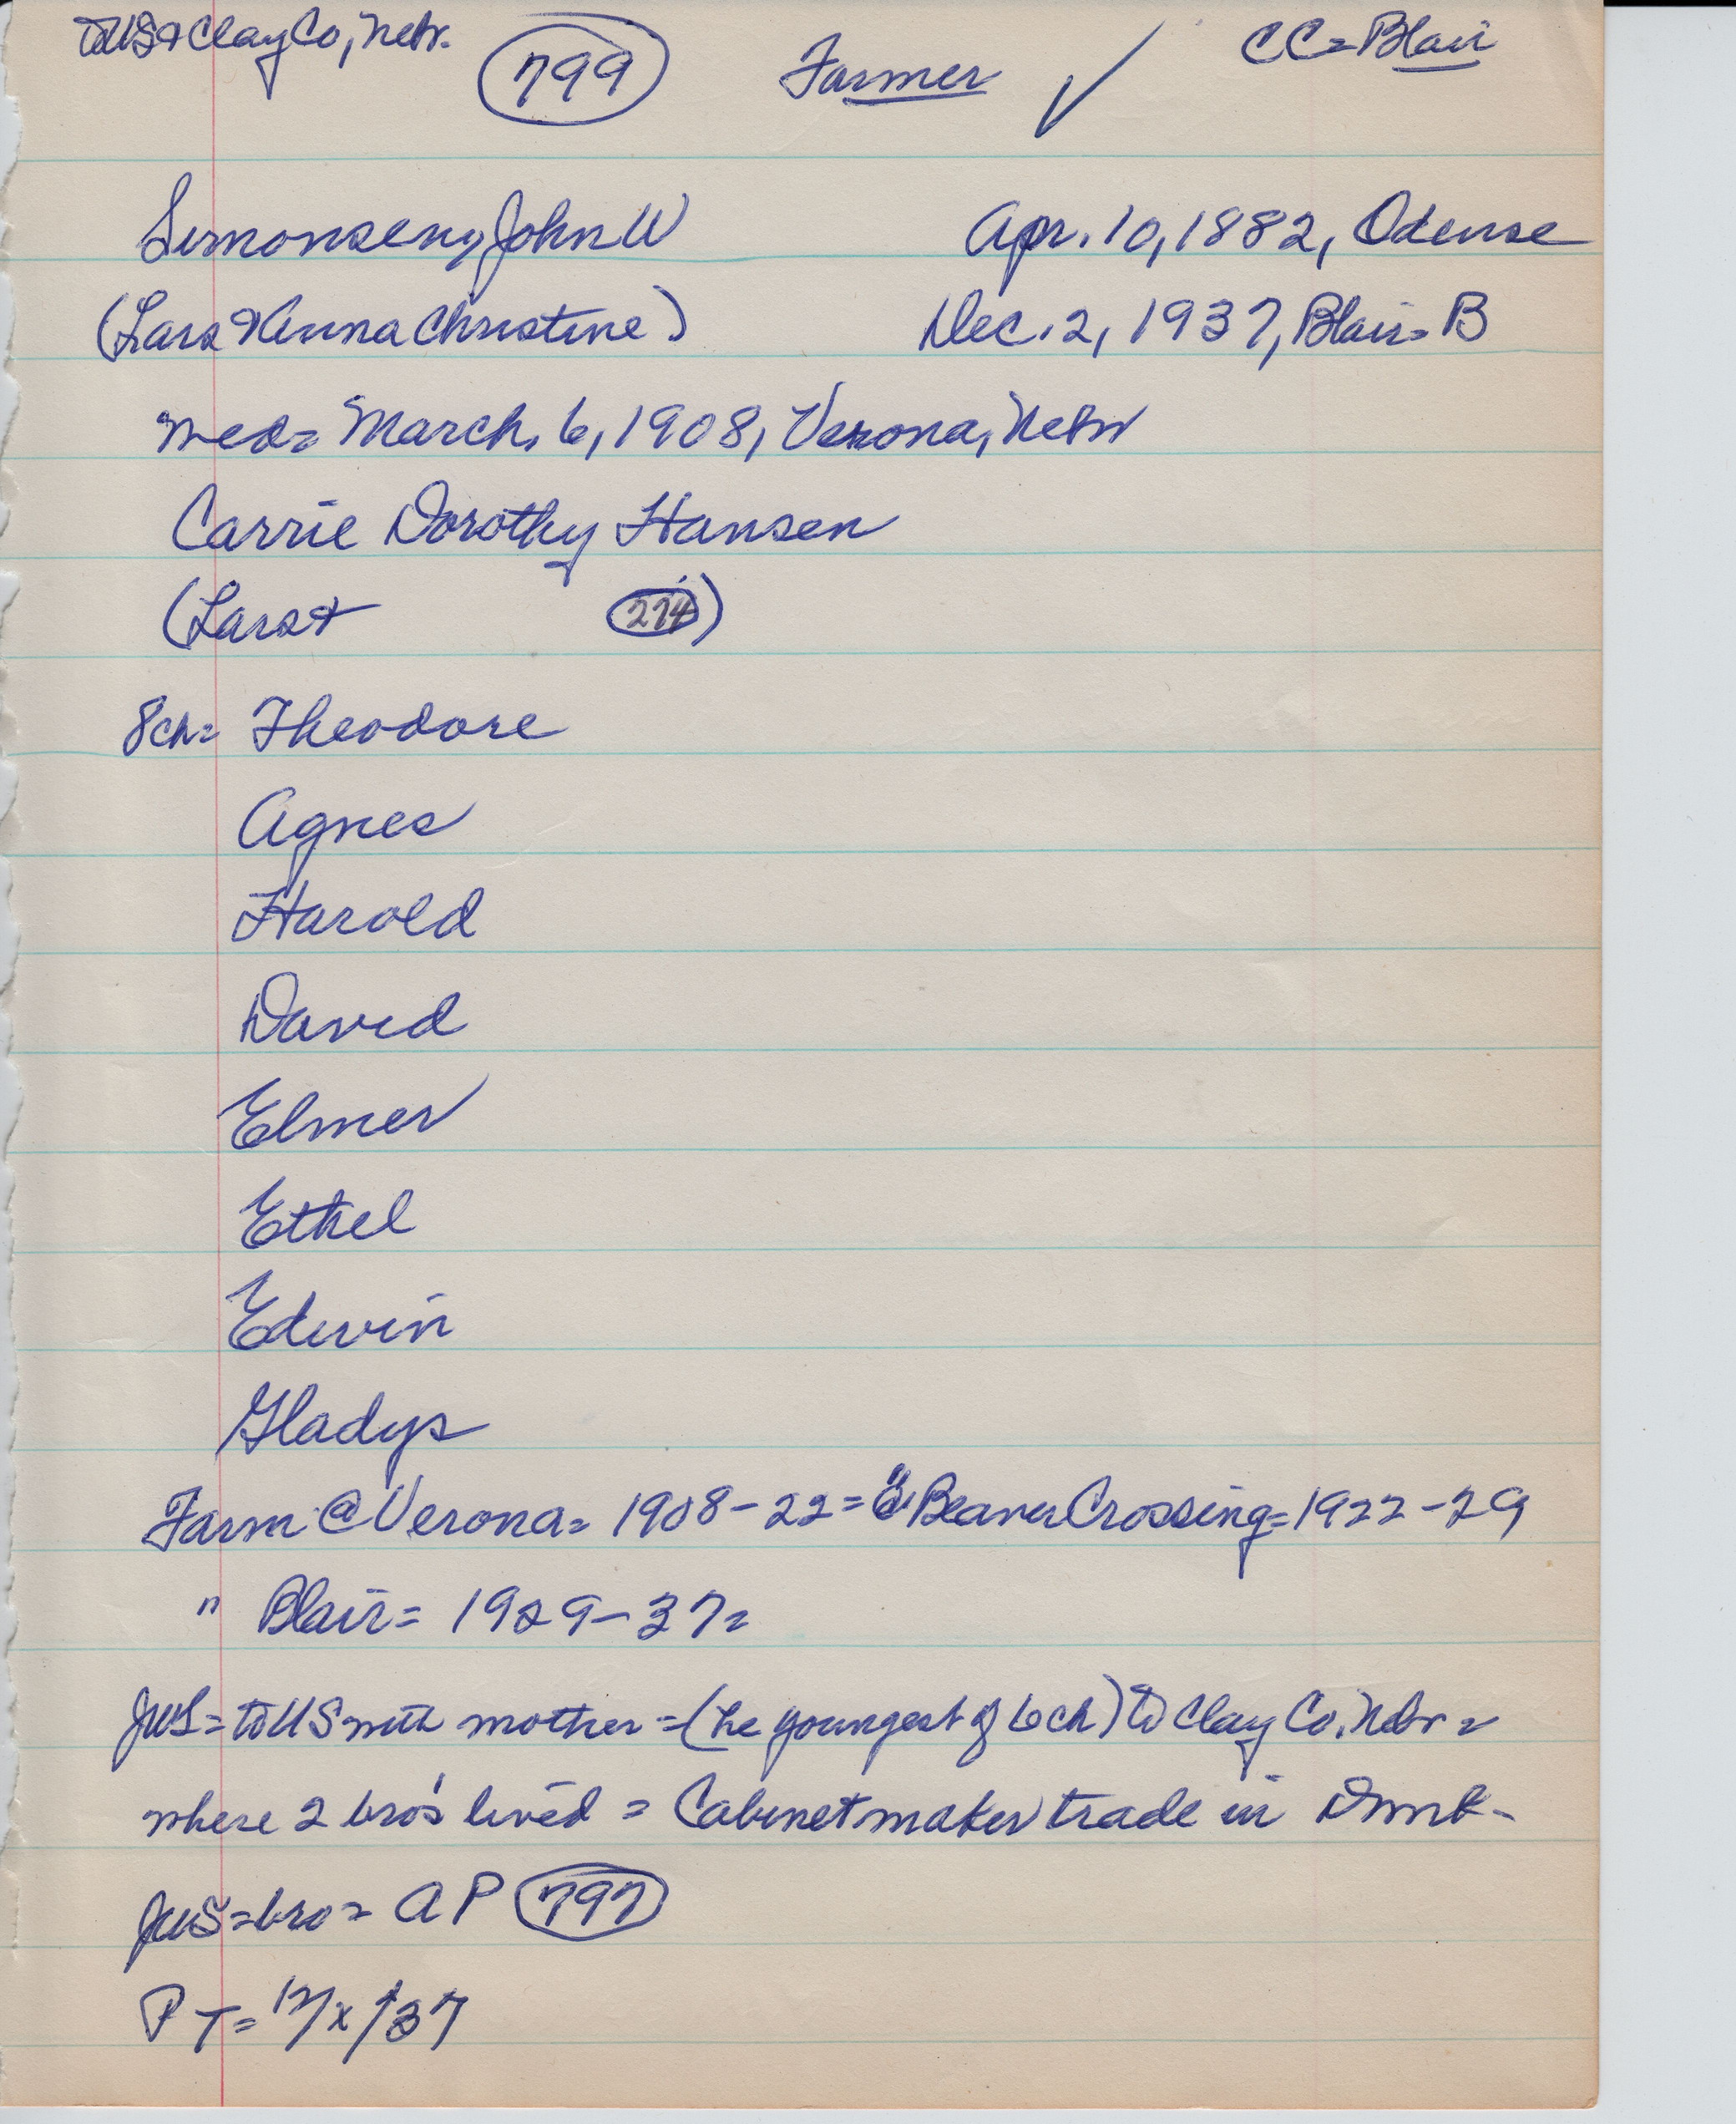 to US & Clay Co, Nebr. 799 Farmer ✓ CC= Blair
Simonsen, John W Apr. 10, 1882, Odense
(Lars & Anna Christine) Dec. 2, 1937, Blair= B
med= March. 6, 1908, Verona, Nebr
Carrie Dorothy Hansen
(Lars & 274)
8ch= Theodore
Agnes
Harold
David
Elmer
Ethel
Edwin
Gladys
Farm @ Verona= 1908-22= " Beaver Crossing= 1922-29
" Blair= 1929-37=
JWS= to US with mother =(he youngest of 6 ch) to Clay Co, Nebr=
where 2 bro's lived = Cabinetmaker trade in Dmk-
JWS=bro= AP 797
PT=